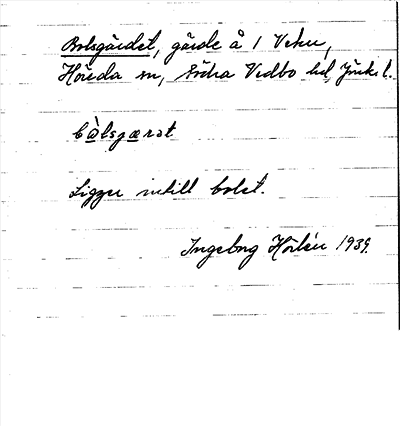 Bolsgärdet, gärde å 1 Veku,
Höreda sn, Södra Vedbo hd, Jönk. l.
Ligger intill bolet.
Ingeborg Hörlén 1939.